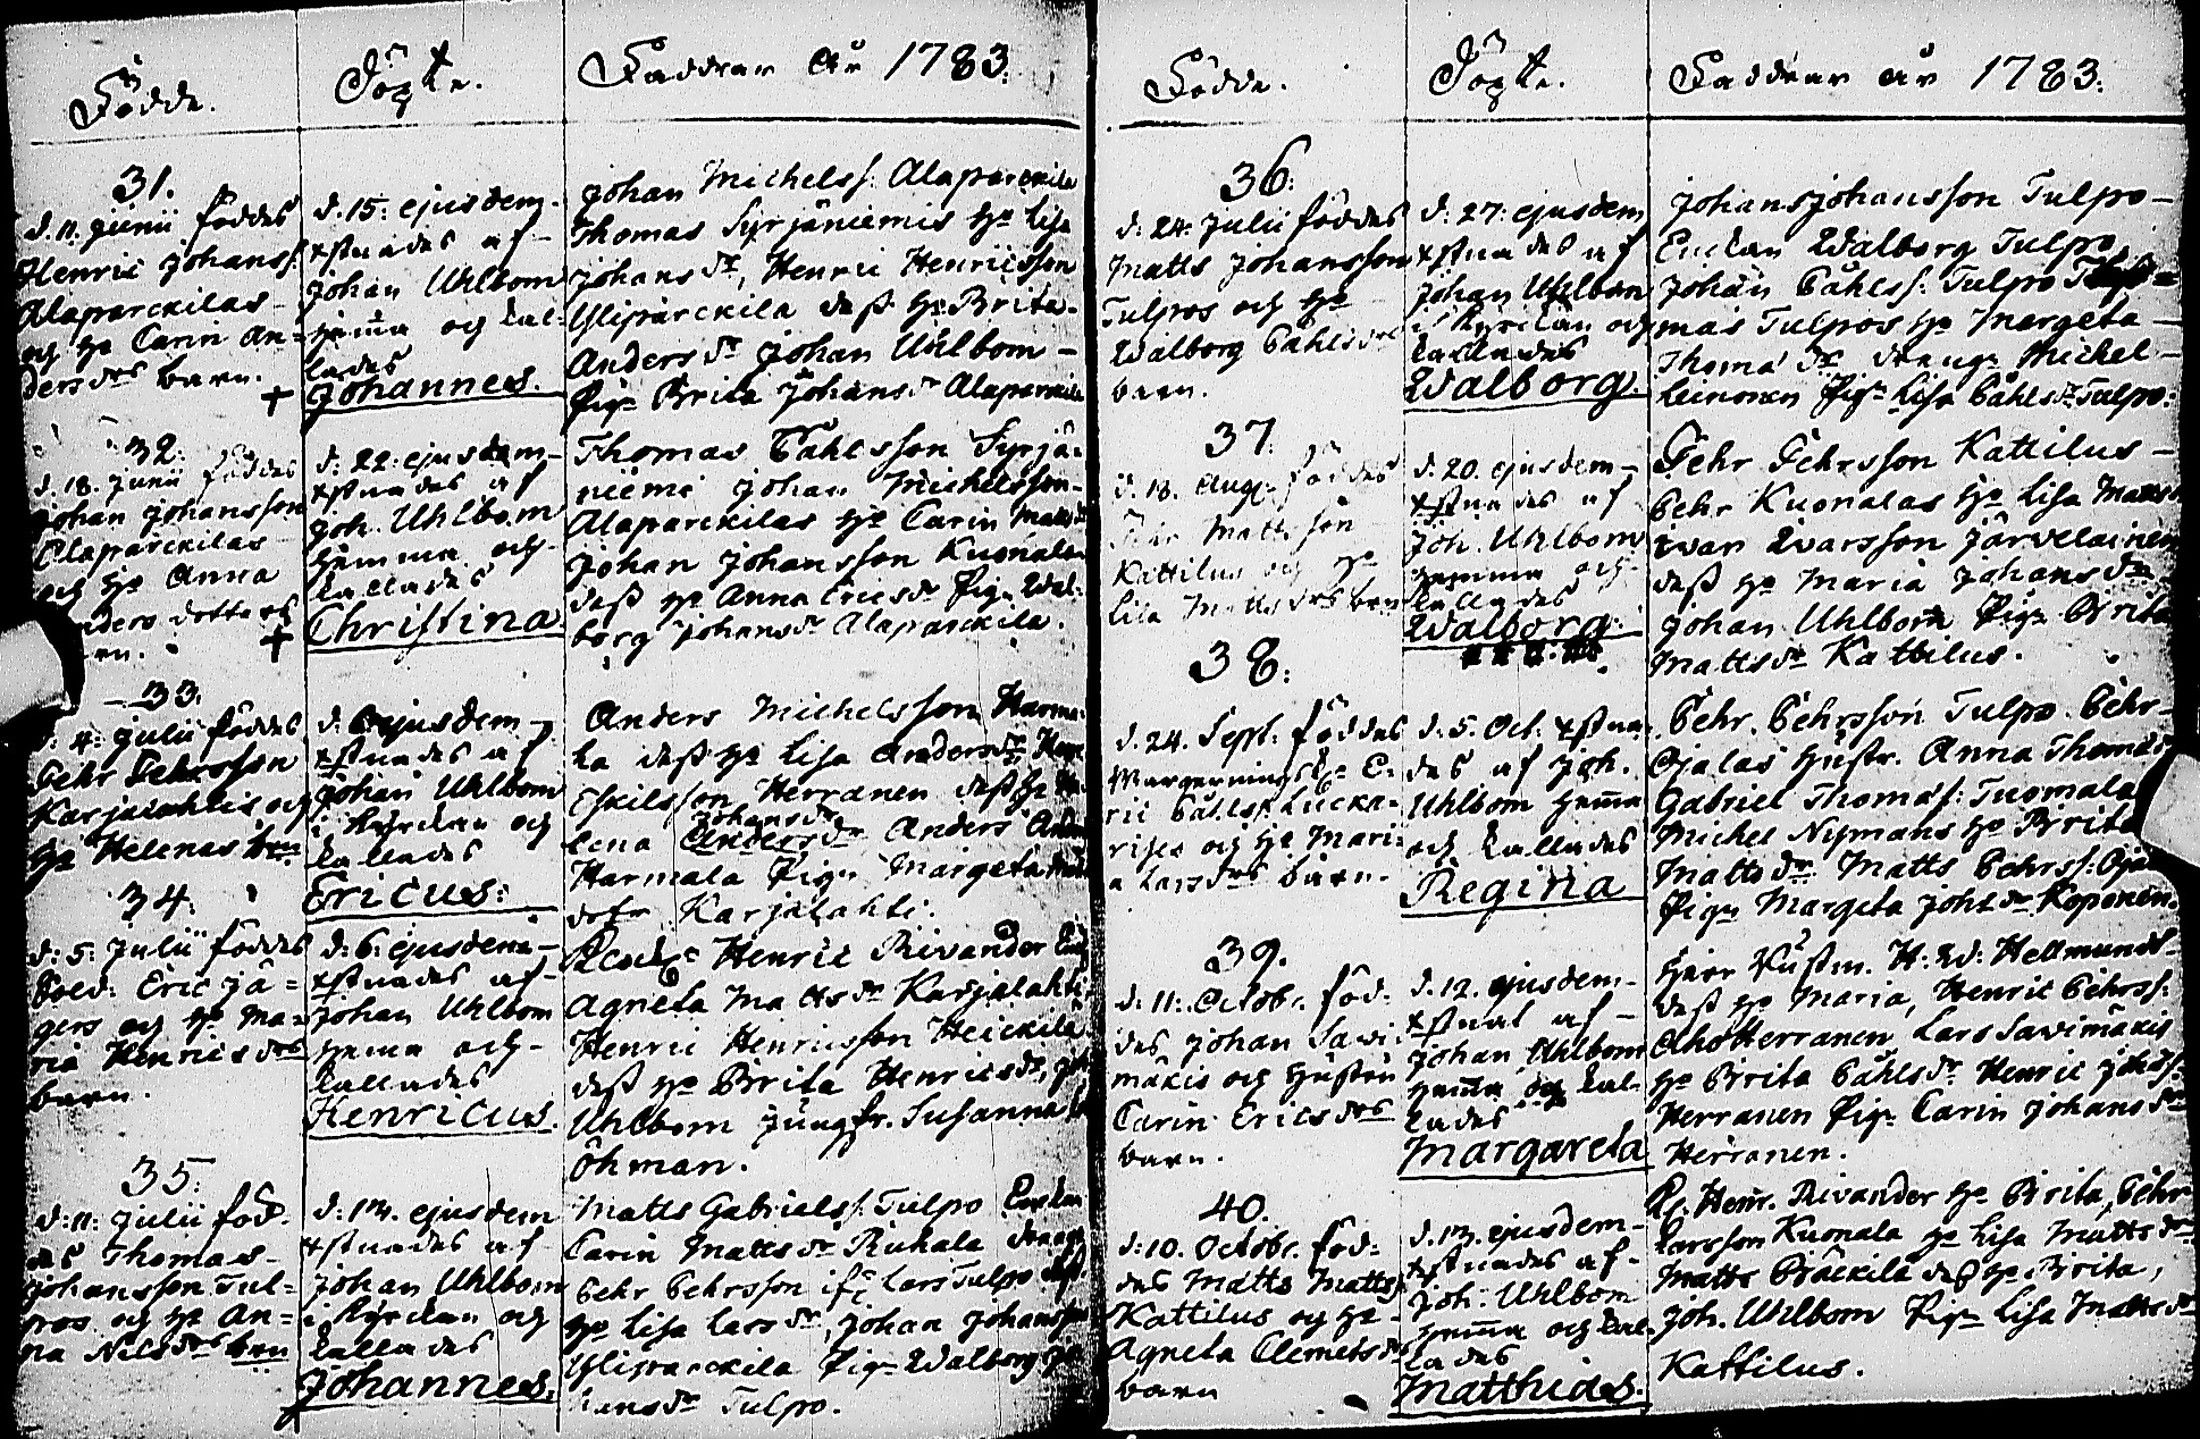 Födde.
Döpte.
Faddrar år 1783.
31.
d. 11. Junii föddes
Henric Johanss.
Alaparckilas
och H:s Carin An=
ders drs barn. +
d. 15: ejusdem
xstnades af
Johan Uhlbom
hemma och kal=
lades
Johannes.
Johan Michelss. Alaparckila
Thomas Syrjäniemis h:o Lisa
Johans dr, Henric Henricsson
Yliparckila dess h:o Brita
Anders dr Johan Uhlbom
Pig. Brita Johans dr Alaparckila
32.
d. 18. Junii föddes
Johan Johansson
Alaparckilas
och h:o Anna
dotters
+
d: 22: ejusdem
xstnades af
Joh. Uhlbom
hemma och
kallades
Christina
Thomas Påhlsson Syrjä=
niemi Johan Michelsson
Alaparckilas h:o Carin Matts dr
Johan Johansson Kuonala
dess h:o Anna Erics dr Pig. Wal=
borg Johans dr Alaparckila.
33.
d: 4: Julii föddes
Pehr Pehrsson
Karjalahtis och
h:o Helenas brn
d. 6 ejusdem
xstnades af
Johan Uhlbom
i Kyrckan och
kallades
Ericus:
Anders Michelsson Harma=
la dess h:o Lisa Anders dr,
Eskilsson Herranen dess h:o He=
lena Johans dr Anders dr Anders
Harmala Pig. Margeta
dotr Karjalahti.
34.
d: 5: Julii föddes
Sold: Eric Jä=
gers och h:o Ma=
ria Henrics drs
barn.
d: 6: ejusdem
xstnades af
Johan Uhlbom
hemma och
kallades
Henricus.
Henric Rivander
Agneta Matts dr Karjalahti
Henric Henricsson Heickilä
dess h:o Brita Henrics dr, Joh
Uhlbom Jungfr. Susanna
Öhman.
35.
d: 11: Julii föd=
des Thomas
Johansson Tul=
pos och h:o An=
na Nils drs brn
d: 13. ejusdem
xstnades af
Johan Uhlbom
i Kyrckan och
kallades
Johannes.
Matts Gabrielss. Tulpo Enckan
Carin Matts dr Rukala dräng
Pehr Pehrsson Lars Tulpo dess
h:o Lisa Lars dr, Johan Johansson
Yliparckila Pig. Walborg Jo=
hans dr Tulpo.
Födde.
Döpte.
Faddrar år 1783.
36.
d: 24: Julii föddes
Matts Johansson
Tulpos och h:o
Walborg Påhls drs
barn.
d: 27: ejusdem
xstnades af
Johan Uhlbom
i Kyrckan och
kallades
Walborg.
Johan Johansson Tulpo
Enckan Walborg Tulpo,
Johan Påhlss. Tulpo Tho=
mas Tulpos h:o Margeta
Thomæ dr dräng. Michel
Leinonen Pig. Lisa Påhls dr Tulpo.
37.
d. 18. Aug. föddes
Pehr Mattsson
Kattilus och h:o
Lisa Matts drs barn
d. 20. ejusdem
xstnades af
Joh. Uhlbom
hemma och
kallades
Walborg.
Pehr Pehrsson Kattilus
Pehr Kuonalas h:o Lisa Matts dr
Iwar Iwarsson Järveläinen
dess h:o Maria Johans dr
Johan Uhlbom Pig. Brita
Matts dr Kattilus.
38.
d. 24. Sept. föddes
E=
ric Påhlss. Lucka=
rises och h:o Mari=
a Lars drs barn.
d. 5. Oct. xstna=
des af Joh.
Uhlbom hemma
och kallades
Regina
Pehr Pehrsson Tulpo Pehr
Ojalas hustr. Anna Thomæ dr
Gabriel Thomæs: Tuomala
Michel Nymans h:o Brita
Matts dr Matts Pehrss: Ojala
Pig. Margeta Joh: dr Koponen.
39.
d: 11: Octobr. föd=
des Johan Sawi=
mäkis och hustru
Carin Erics drs
barn.
d. 12. ejusdem
xstnat af
Johan Uhlbom
hemma och kal=
lades
Margareta
Herr H: W: Hellmundt
dess h:o Maria, Henric Pehrss:
Aho Herranen Lars Sawimäkis
h:o Brita Påhls dr Henric Johss:
Herranen Pig. Carin Johans dr
Herranen.
40.
d: 10. Octobr. föd=
des Matts Mattss.
Kattilus och h:o
Agneta Clemets drs
barn
d. 13. ejusdem
xstnades af
Joh: Uhlbom
hemma och kal=
lades
Matthias.
Henr. Rivander h:o Brita, Pehr
Larsson Kuonala h:o Lisa Matts dr
Matts Präckilä dess h:o Brita,
Joh. Uhlbom Pig. Lisa Matts dr
Kattilus.